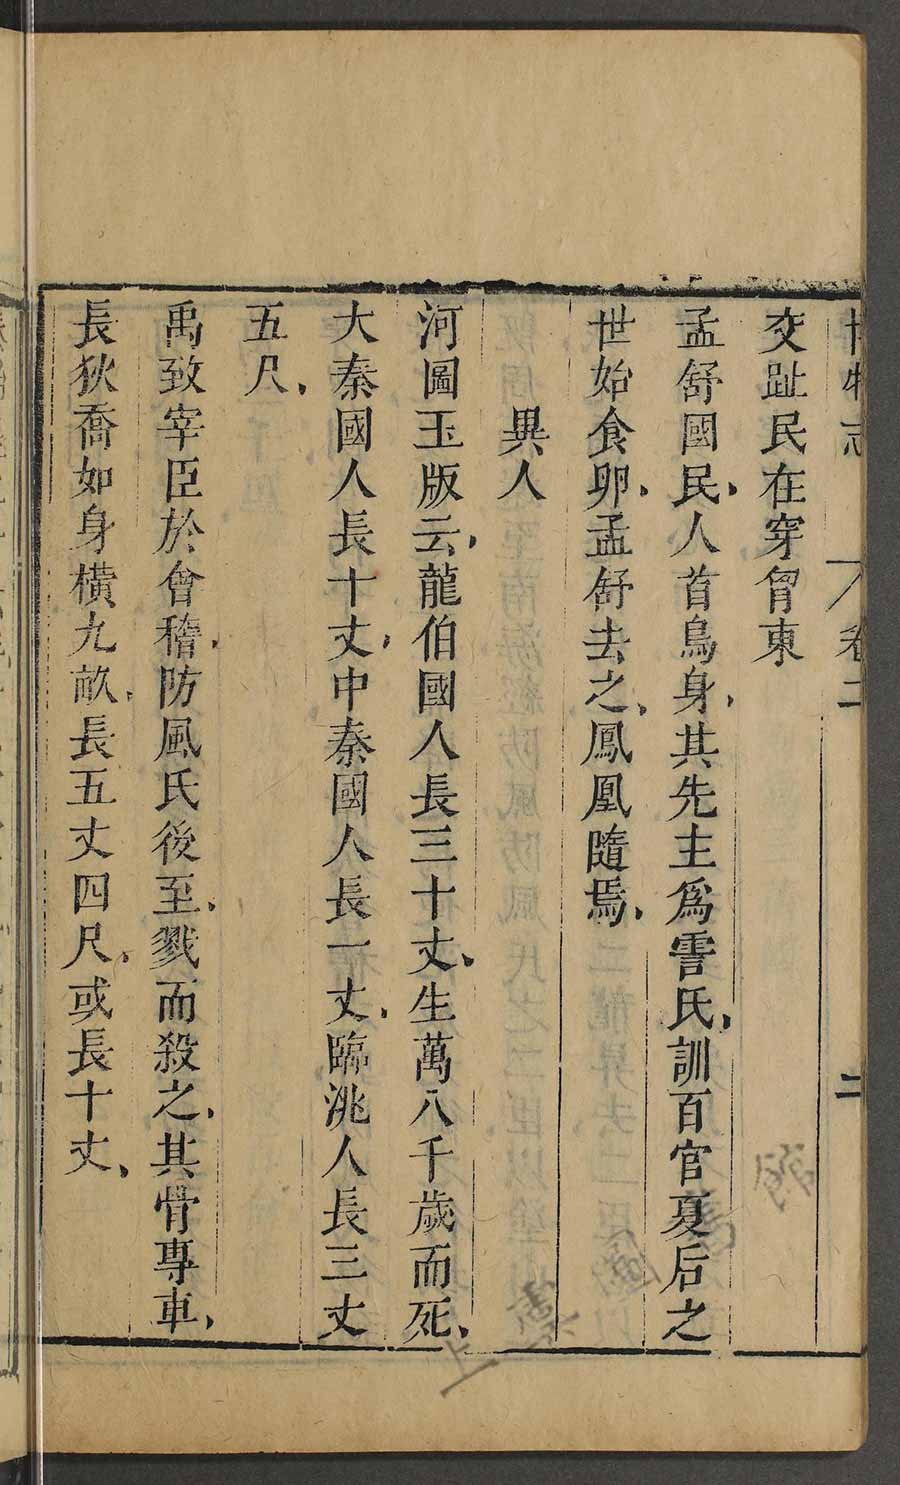 博物志 卷二 二
交趾民在穿胷東
孟舒國民、人首鳥身、其先主爲霅氏、訓百官夏后之
世始食卵、孟舒去之、鳳凰隨焉、
異人
河圖玉版云、龍伯國人長三十丈、生萬八千歲而死、
大秦國人長十丈、中秦國人長一丈、臨洮人長三丈
五尺、
禹致宰臣於會稽、防風氏後至、戮而殺之、其骨專車、
長狄喬如身橫九畝、長五丈四尺、或長十丈、